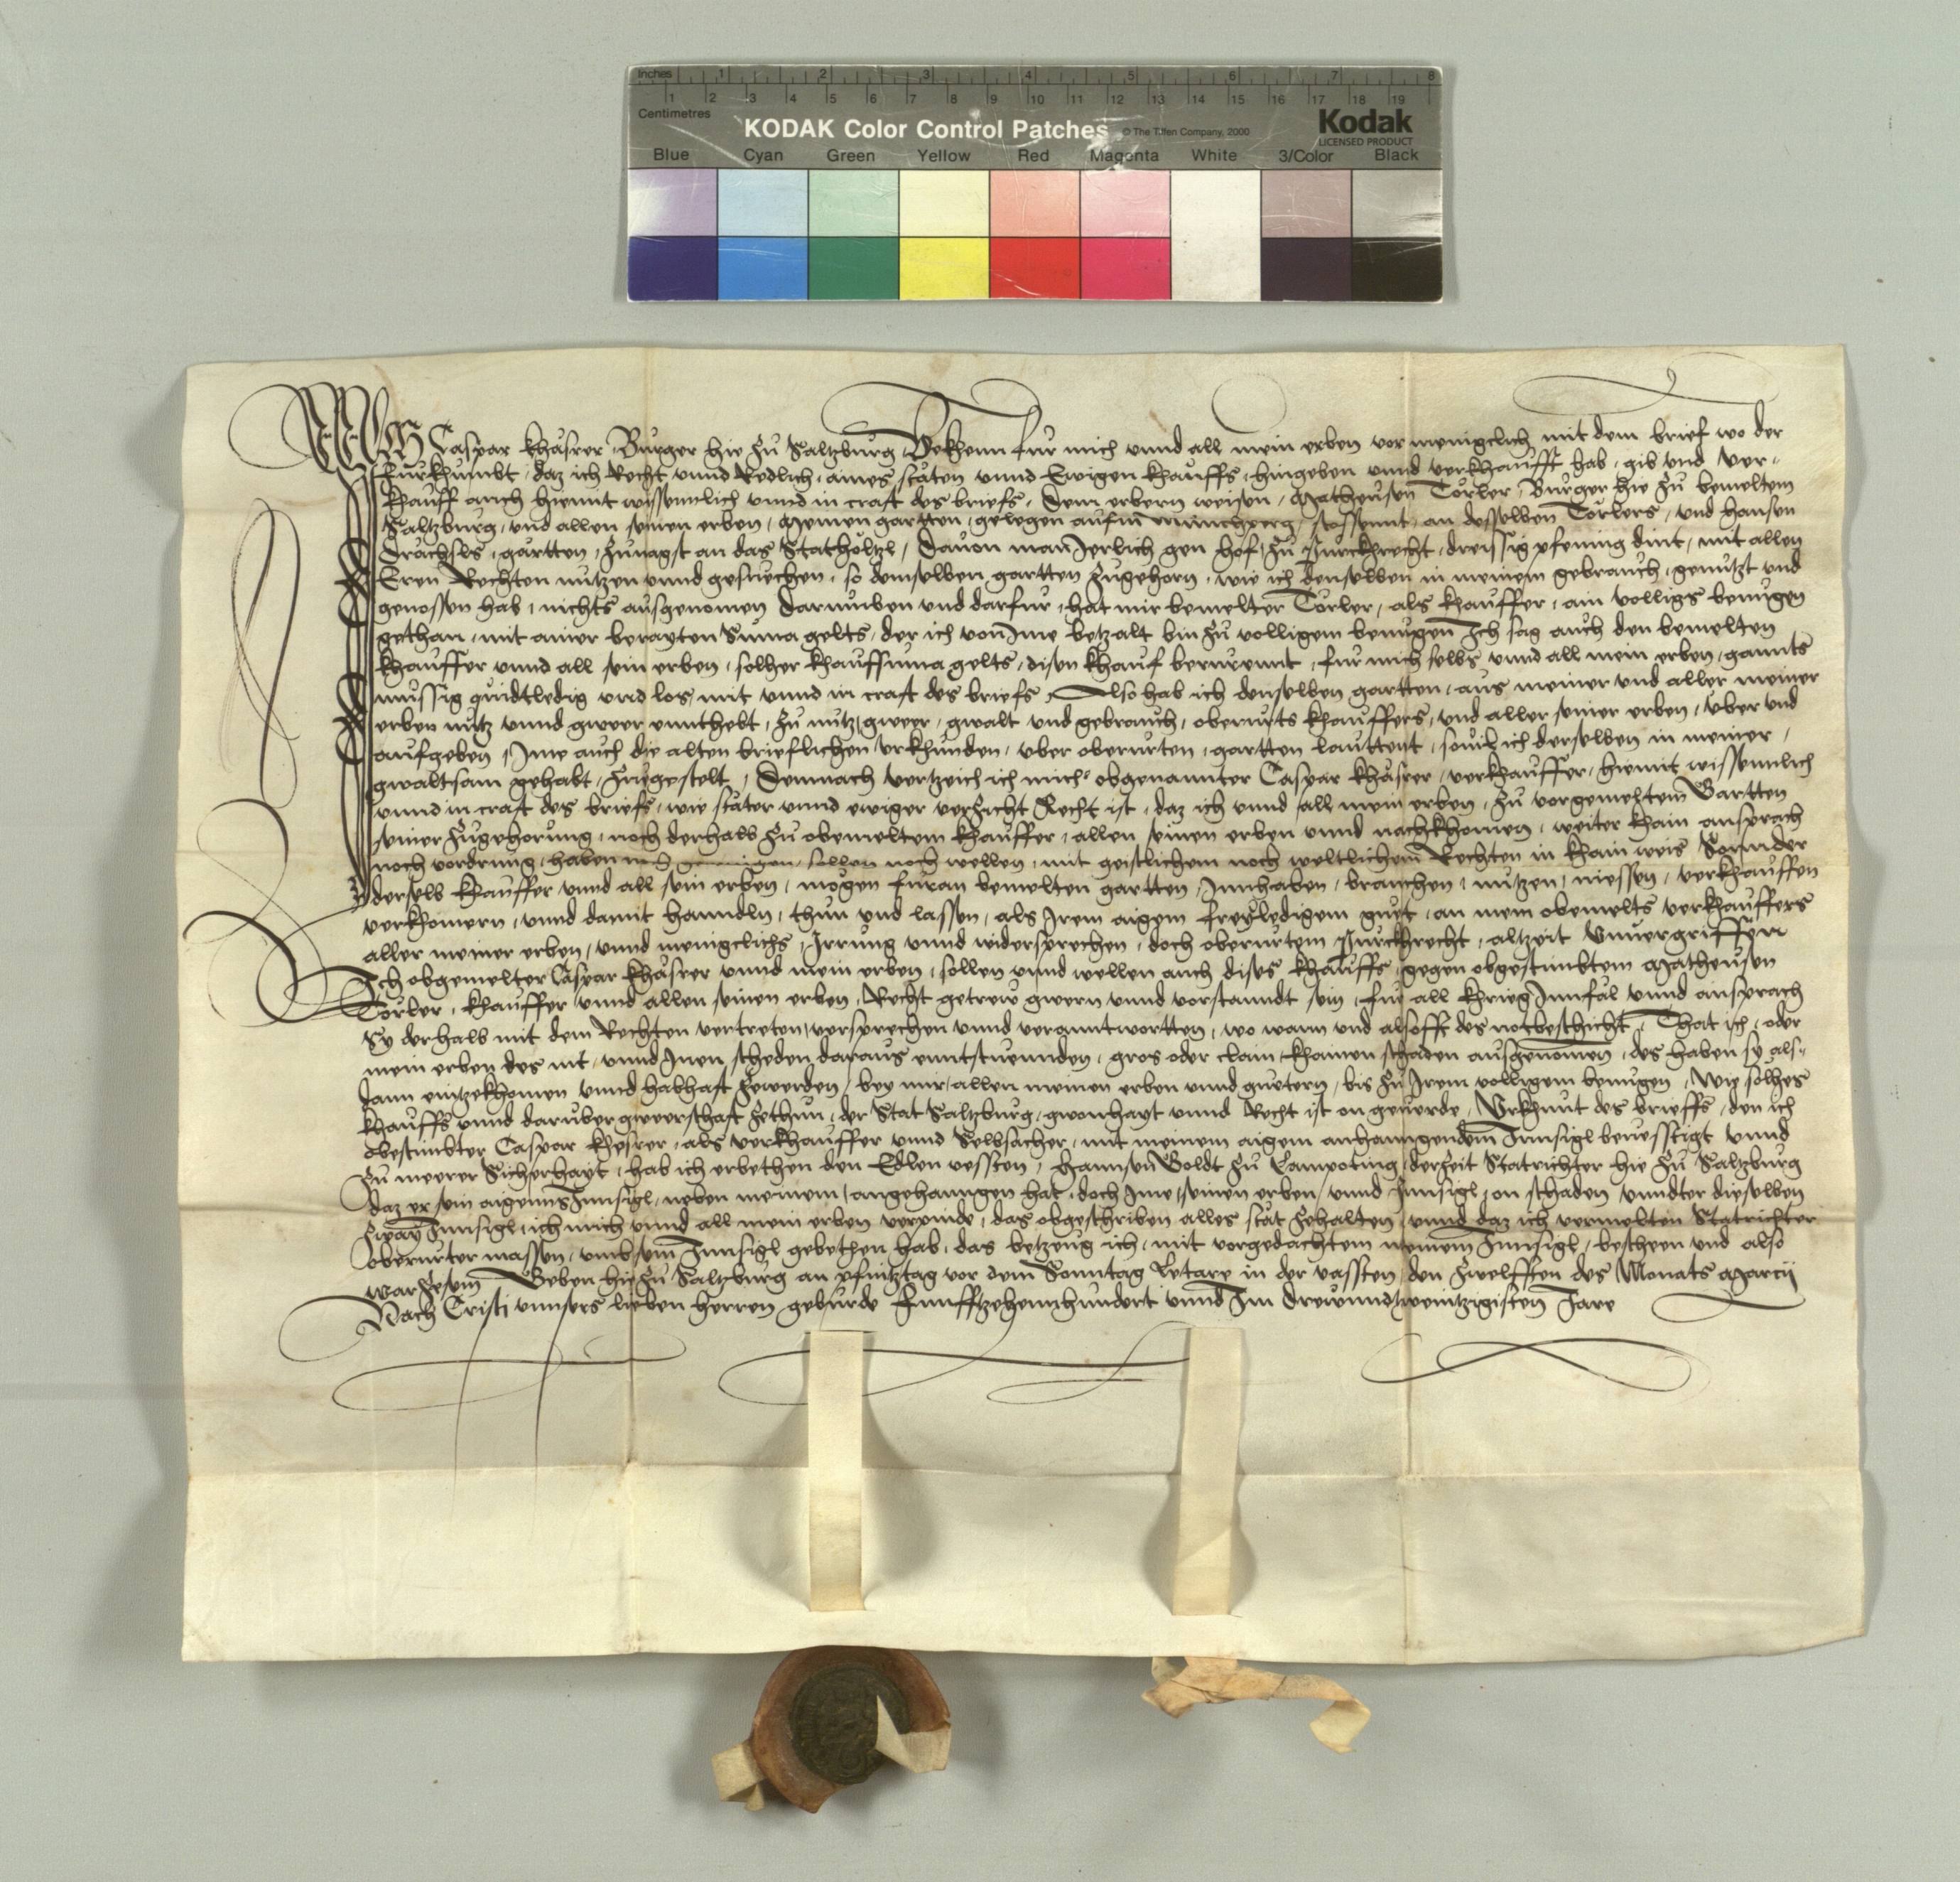 Inches 1 2 3 4 5 6 7 8
1 2 3 4 5 6 7 8 9 10 11 12 13 14 15 16 17 18 19
Centimetres
KODAK Color Control Patches © The Tiffen Company, 2000 Kodak
LICENSED PRODUCT
Blue Cyan Green Yellow Red Magenta White 3/Color Black
Ich Caspar Khåsrer Burger hie zu Saltzburg Bekhenn fur mich vnnd all mein erben vor menigclich mit dem brief wo der
furkhumbt, daz ich Recht vnnd Redlich, aines ståten vnnd Ewigen khauffs, hingeben vnnd verkhaufft hab, gib vnd ver-
khauff auch hiemit wissenntlich vnnd in craft des briefs, dem erbern weisen, Matheusen Törler, Burger hie zu bemeltem
Saltzburg, vnd allen seinen erben, Meinen gartten, gelegen aufm Munchperg, stossennt, an desselben Törlers, vnd Hansen
Dråchsls, gårtten, zunagst an das Stathöltzl, Dauon man Jerlich gen hof, zu Purckhrecht, dreissig pfening dint, mit allen
Eren Rechten nutzen vnnd gesuechen, so demselben gartten zugehorn, wie ich denselben in meinem gebrauch, genutzt vnd
genossen hab, nichts ausgenomen Darumben vnd darfur, hat mir bemelter Törler, als khauffer, ain volligs benugen
gethan, mit ainer berayten Suma gelts, der ich von Ime betzalt bin zu volligem benugen Ich sag auch den bemelten
khauffer vnnd all sein erben, solher khaufsuma gelts, disen khauf berurennt, fur mich selbs vnnd all mein erben, gannts
mussig quidtledig vnd los, mit vnnd in craft des briefs, Also hab ich denselben gartten, aus meiner vnd aller meiner
erben nutz vnnd gweer ennthebt, zu nutz gweer, gwalt vnd gebrauch, oberurts khauffers, vnd aller seiner erben, vber vnd
aufgeben, Ime auch die alten brieflichen vrkhunden, vber oberurten, gartten lauttent, souil ich derselben in meiner,
gwaltsam gehabt, zuegestelt, Demnach vertzeich ich mich obgenannter Caspar Khåsrer, verkhauffer, hiemit wissenntlich
vnnd in craft des briefs, wie ståter vnnd ewiger verzicht Recht ist, daz ich vnnd all mein erben, zu vorgemeltem Gartten
seiner zugehorung, noch derhalb zu obemeltem khauffer, allen seinen erben vnnd nachkhomen, weiter khain ansprach
noch vordrung, haben noch gewingen, sollen noch wellen, mit geistlichem noch weltlichem Rechten in khain weis Sonnder
derselb khauffer vnnd all sein erben, mögen furan bemelten gartten, Innhaben, brauchen, nutzen, niessen, verkhauffen
verkhomern, vnnd damit hanndln, thun vnd lassen, als Irem aigem freyledigem guet, an mein obemelts verkhauffers
aller meiner erben, vnnd menigclichs, Irrung vnnd widersprechen, doch oberurtem Purckhrecht, altzeit Vnuergriffen
Ich obgemelter Caspar Khåsrer vnnd mein erben, sollen vnnd wellen auch dises khauffs, gegen obgestimbtem Matheusen
Törler, khauffer vnnd allen seinen erben, Recht getrew gwern vnnd vorstanndt sein, fur all khrieg Innfål vnnd ansprach
Sy derhalb mit dem Rechten vertreten, versprechen vnnd veranntwortten, wo wann vnd alsofft des notbeschicht, Thåt ich, oder
mein erben des nit, vnnd Inen scheden daraus enntstuennden, gros oder clain, khainen schaden ausgenomen, des haben sy als-
dann eintzekhomen vnnd habhaft zewerden, bey mir, allen meinen erben vnnd guetern, bis zu Irem volligem benugen, Wie solhes
khauffs vnnd daruber gweerschaft zethun, der Stat Saltzburg, gwonhayt vnnd Recht ist on geuerde, Vrkhunt des brieffs, den ich
obestimbter Caspar Khesrer, als verkhauffer vnnd Selbsacher, mit meinem aigem anhanngendem Innsigl beuesstigt vnnd
zu meerer Sicherhayt, hab ich erbethen den Edlen vessten, Hannsen Goldt zu Lampoting, derzeit Statrichter hie zu Saltzburg
daz er sein aigenns Innsigl, neben meinem, angehanngen hat, doch Ime, seinen erben, vnnd Innsigl, on schaden vnndter dieselben
zway Innsigl, ich mich vnnd all mein erben verpinde, das obgeschriben alles ståt zehalten, vnnd daz ich vermelten Statrichter
oberurter massen, vmb sein Innsigl gebethen hab, das betzeug ich, mit vorgedachtem meinem Innsigl, bescheen vnd also
war zesein Geben hie zu Saltzburg an pfintztag vor dem Sonntag Letare in der vassten, den zwelfften des Monats Marcij
Nach Cristi vnnsers lieben herren geburde Funfftzehennhundert vnnd Im drewundtzweintzigisten Jare